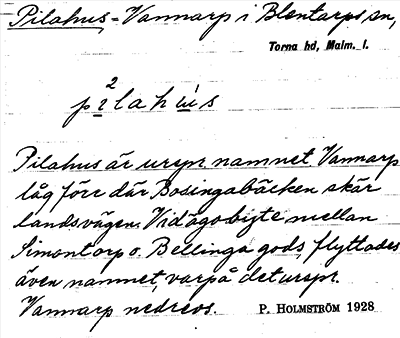 Pilahus = Vannarp i Blentarps sn,
Torna hd, Malm. l.
pi²lahu̇s
Pilahus är urspr. namnet. Vannarp
låg förr där Bosingabäcken skär
landsvägen. Vid ägobyte mellan
Simontorp o. Bellinga gods, flyttades
även namnet, varpå det urspr.
Vannarp nedreos. P. HOLMSTRÖM 1928